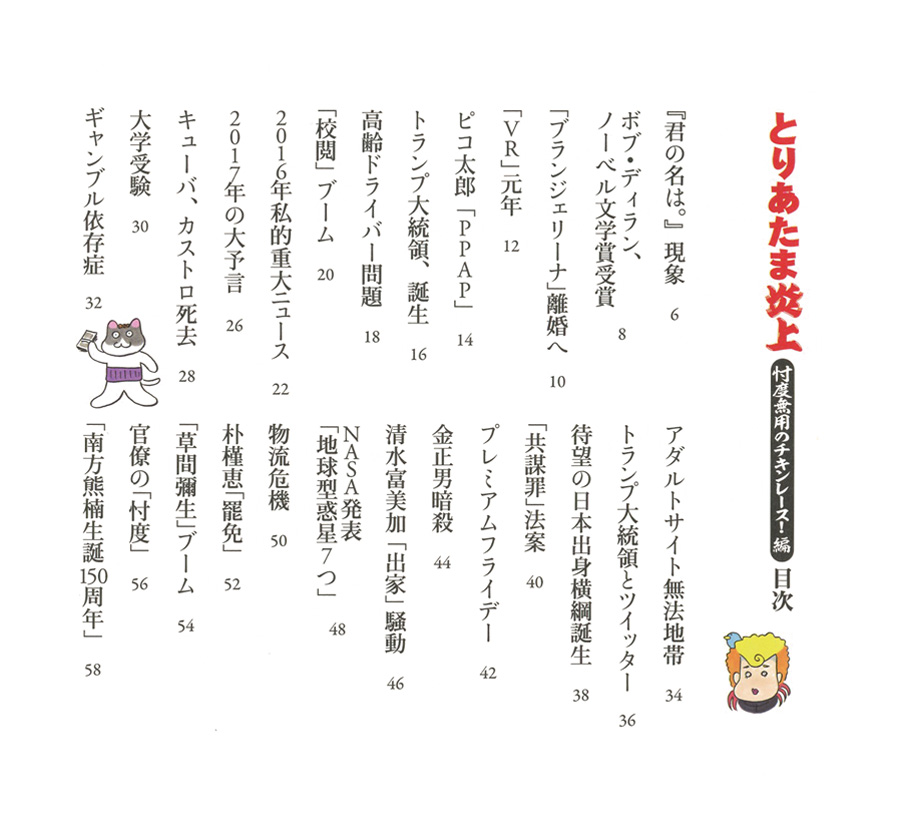 とりあたま炎上
忖度無用のチキンレース!編
目次
『君の名は。』現象 6
ボブ・ディラン、
ノーベル文学賞受賞 8
「ブランジェリーナ」離婚へ 10
「VR」元年 12
ピコ太郎「PPAP」 14
トランプ大統領、誕生 16
高齢ドライバー問題 18
「校閲」ブーム 20
2016年私的重大ニュース 22
2017年の大予言 26
キューバ、カストロ死去 28
大学受験 30
ギャンブル依存症 32
アダルトサイト無法地帯 34
トランプ大統領とツイッター 36
待望の日本出身横綱誕生 38
「共謀罪」法案 40
プレミアムフライデー 42
金正男暗殺 44
清水富美加「出家」騒動 46
NASA発表
「地球型惑星7つ」 48
物流危機 50
朴槿恵「罷免」 52
「草間彌生」ブーム 54
官僚の「忖度」 56
「南方熊楠生誕150周年」 58